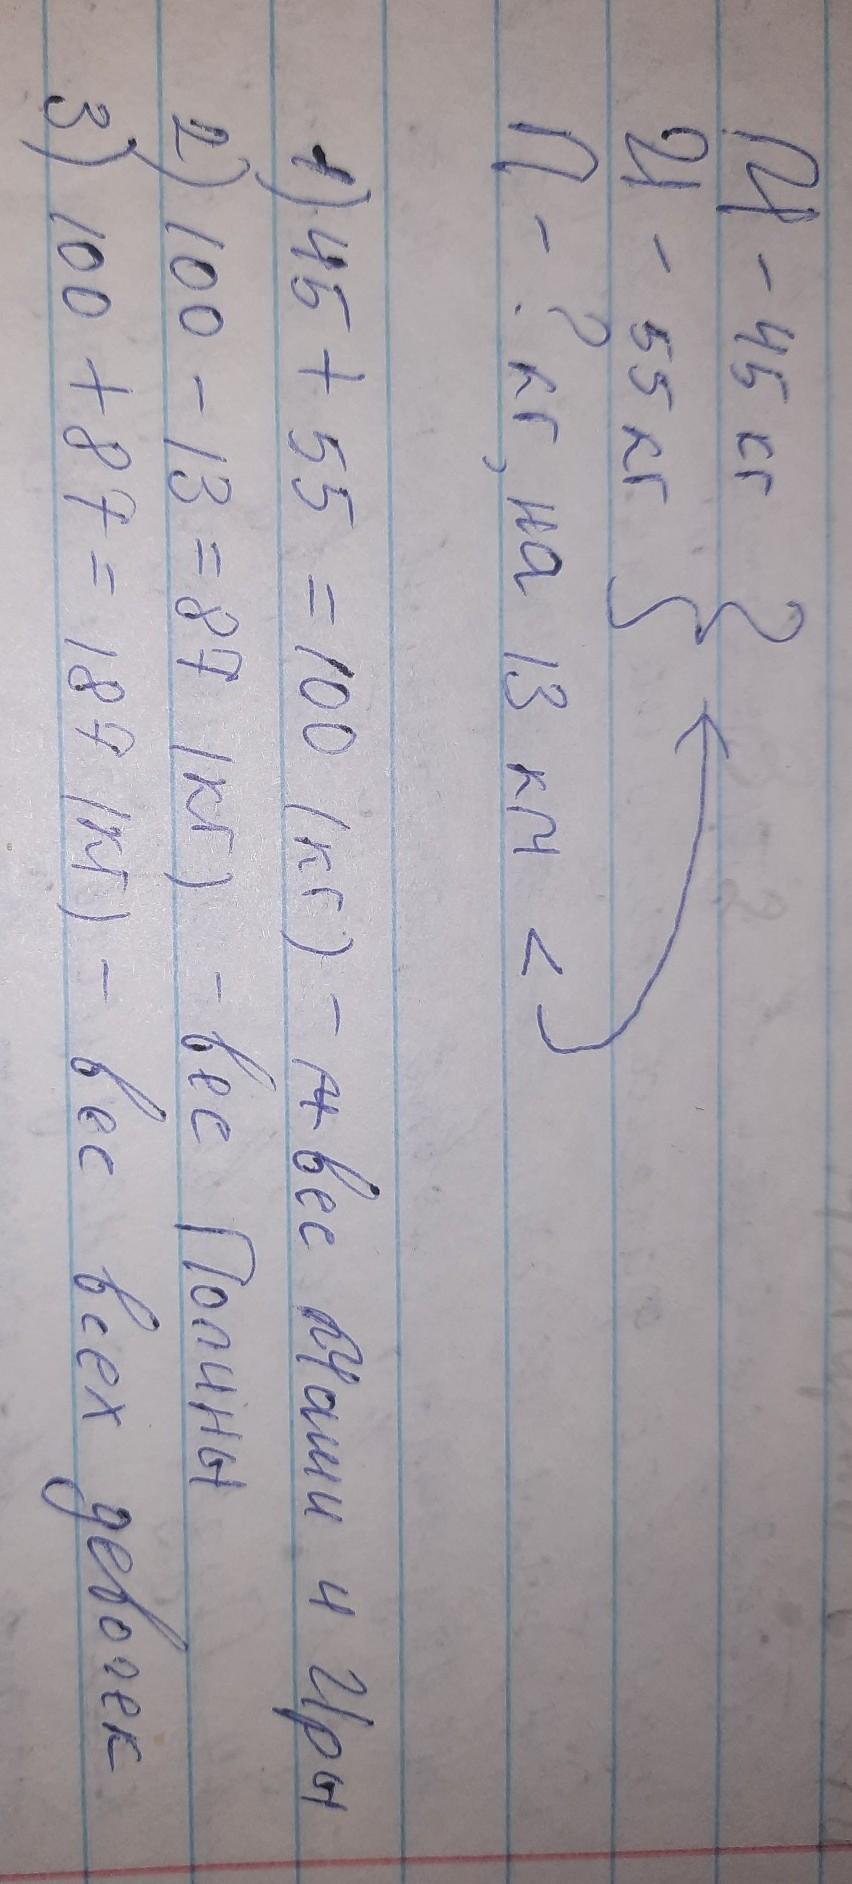 М - 45 кг
И - 55 кг
П - ? кг, на 13 кг <
1) 45 + 55 = 100 (кг) - вес Маши и Иры
2) 100 - 13 = 87 (кг) - вес Полины
3) 100 + 87 = 187 (кг) - вес всех девочек